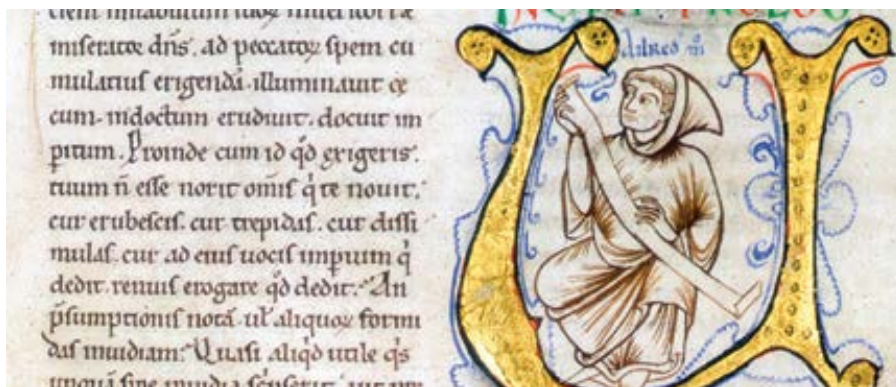 miserator dn̄s. ad peccatoꝝ spem cu
mulatius erigendā. illuminauit ce
cum. indoctum erudiuit. docuit im
ꝑitum. Proinde cum id qd̄ exigeris.
tuum n̄ esse norit omīs q̇ te nouit.
cur erubescis. cur trepidas. cur dissi
mulas. cur ad eius uocis imꝑium q̇
dedit. renuis erogare qd̄ dedit. An
p̄sumptionis notā. ul̄ aliquoꝝ formi
das inuidiam. Quasi aliqd̄ utile q̇s
INCIPIT PROLOG